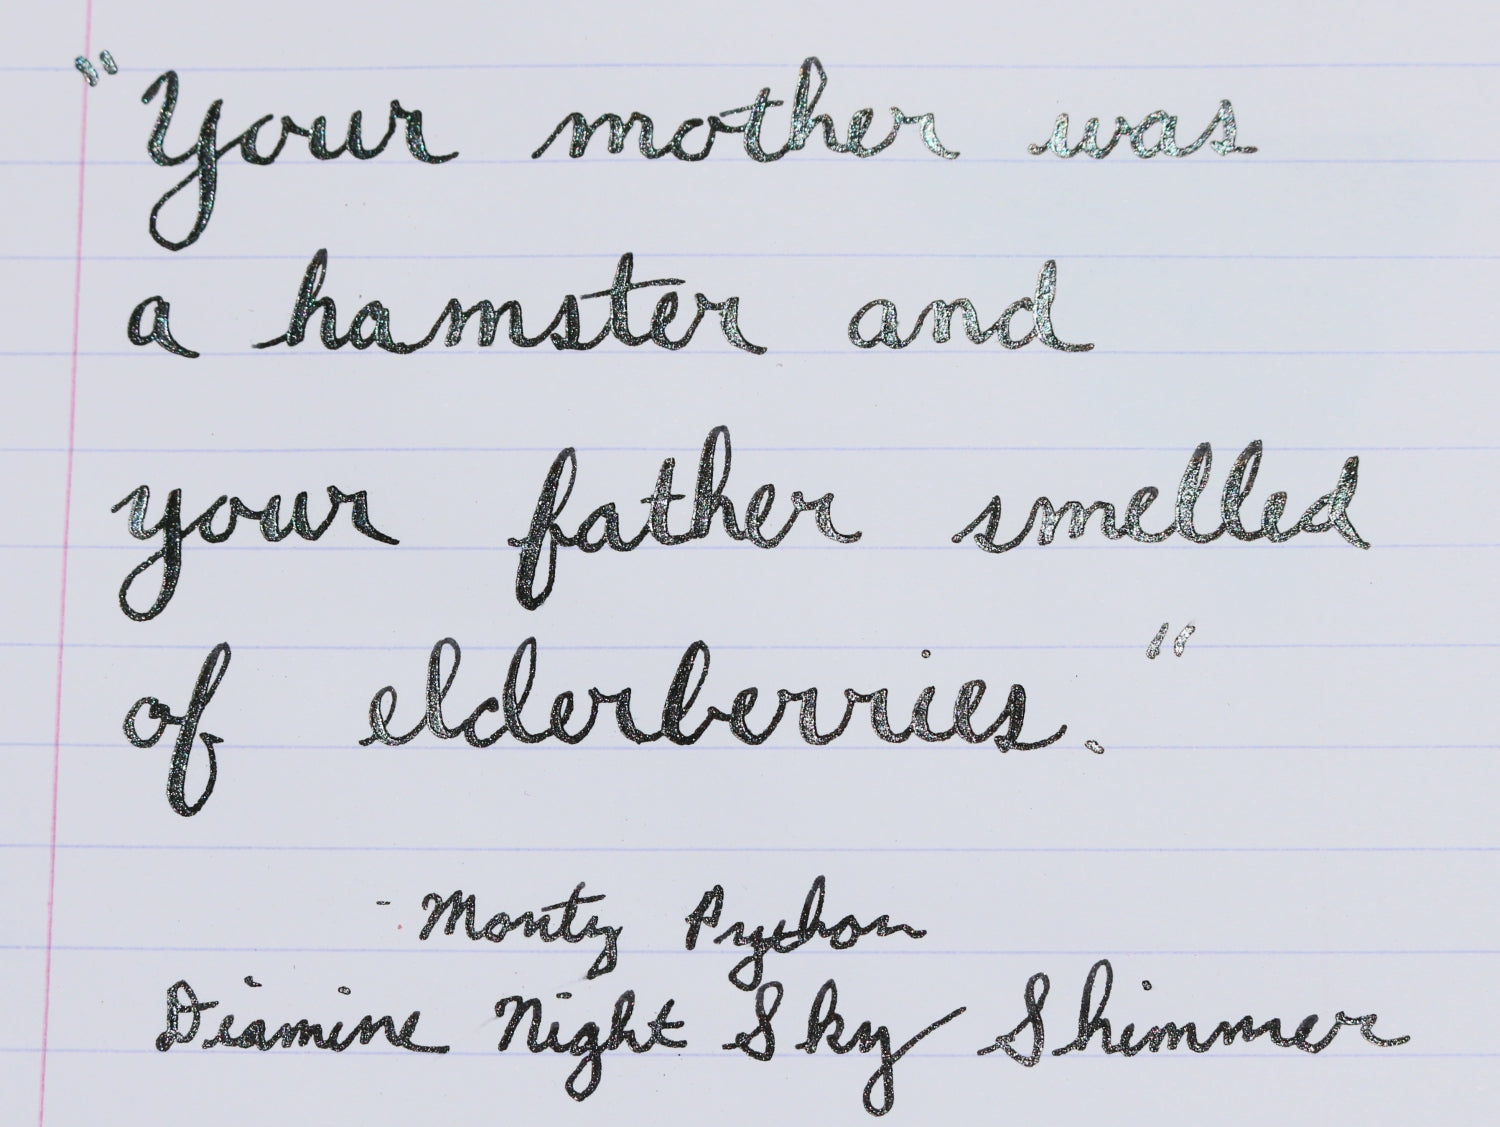 "Your mother was
a hamster and
your father smelled
of elderberries."
- Monty Python
Diamine Night Sky Shimmer